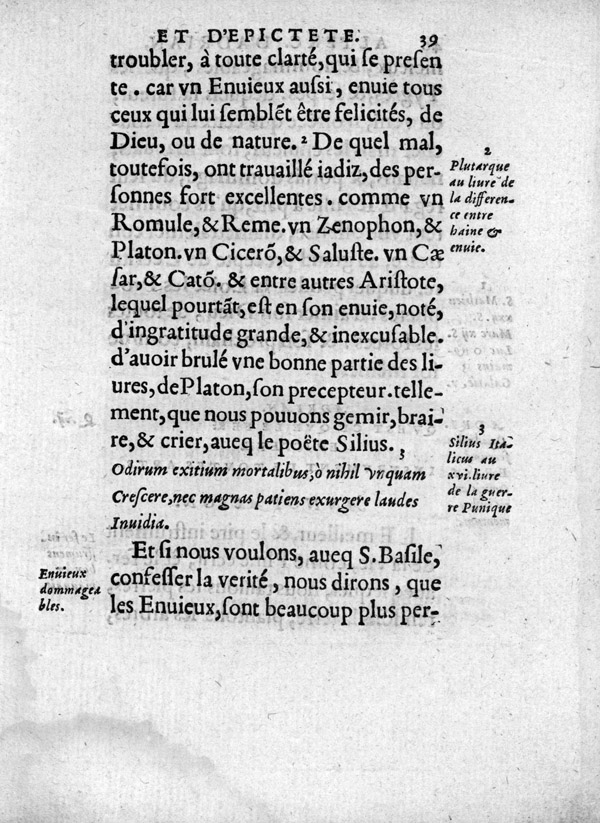 ET D'EPICTETE. 39
troubler, à toute clarté, qui se presen
te . car vn Enuieux aussi , enuie tous
ceux qui lui semblẽt être felicités, de
Dieu, ou de nature. ² De quel mal,
toutefois, ont trauaillé iadiz, des per-
sonnes fort excellentes . comme vn
Romule, & Reme. vn Zenophon, &
Platon. vn Cicerõ, & Saluste. vn Cæ
sar, & Catõ. & entre autres Aristote,
lequel pourtãt, est en son enuie, noté,
d'ingratitude grande, & inexcusable.
d'auoir brulé vne bonne partie des li-
ures, de Platon, son precepteur. telle-
ment, que nous pouuons gemir, brai-
re, & crier, aueq le poëte Silius. 3
Odirum exitium mortalibus, ò nihil vnquam
Crescere, nec magnas patiens exurgere laudes
Inuidia.
Et si nous voulons, aueq S. Basile,
confesser la verité , nous dirons , que
les Enuieux, sont beaucoup plus per-
2
Plutarque
au liure de
la differen-
ce entre
haine &
enuie.
3
Silius Ita-
licus au
xvi. liure
de la guer-
re Punique
Enuieux
dommagea
bles.